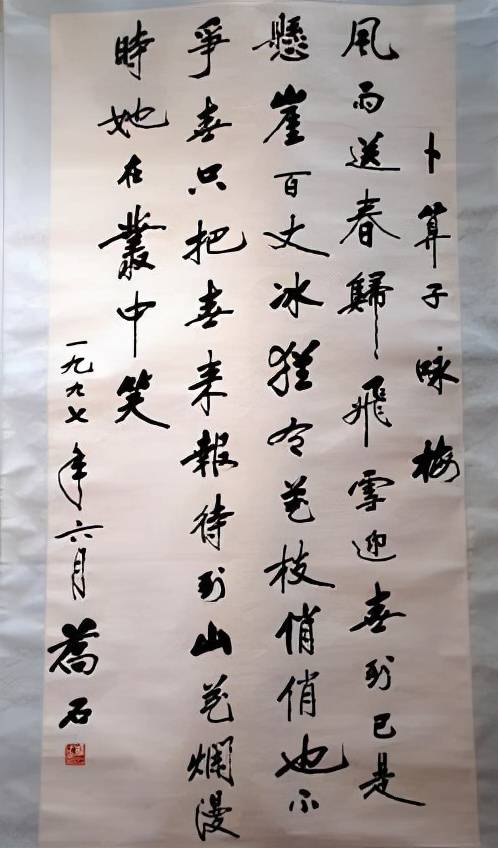 卜算子咏梅
風雨送春歸飛雪迎春到已是
懸崖百丈冰猶有花枝俏俏也不
爭春只把春来報待到山花爛漫
時她在叢中笑
一九九七年六月喬石